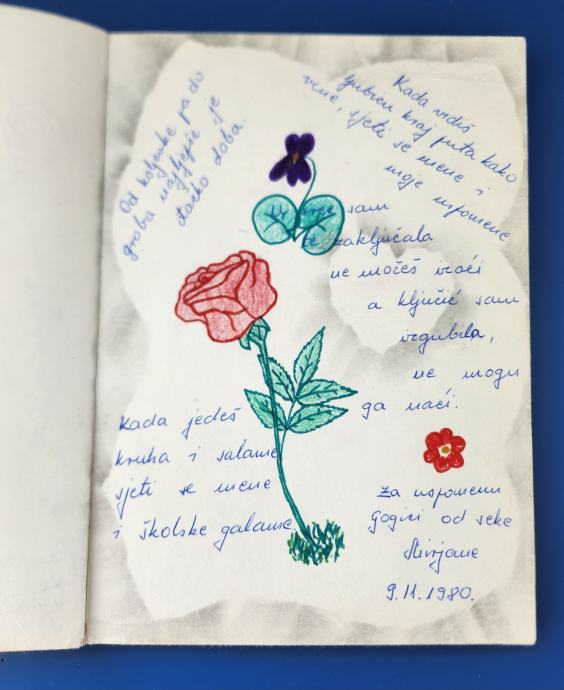 Od koljevke pa do
groba najljepše je
đačko doba.
Kada vidiš
ljubicu kraj puta kako
vene, sjeti se mene i
moje uspomene
u srce sam
te zaključala
ne možeš izaći
a ključić sam
izgubila,
ne mogu
ga naći.
Kada jedeš
kruha i salame
sjeti se mene
i školske galame
Za uspomenu
Gogici od seke
Mirjane
9.11.1980.